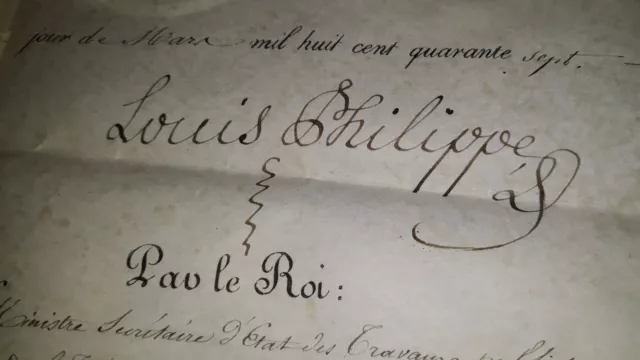 jour de Mars mil huit cent quarante sept.
Louis Philippe
Par le Roi:
Ministre Secrétaire d'Etat des Travaux